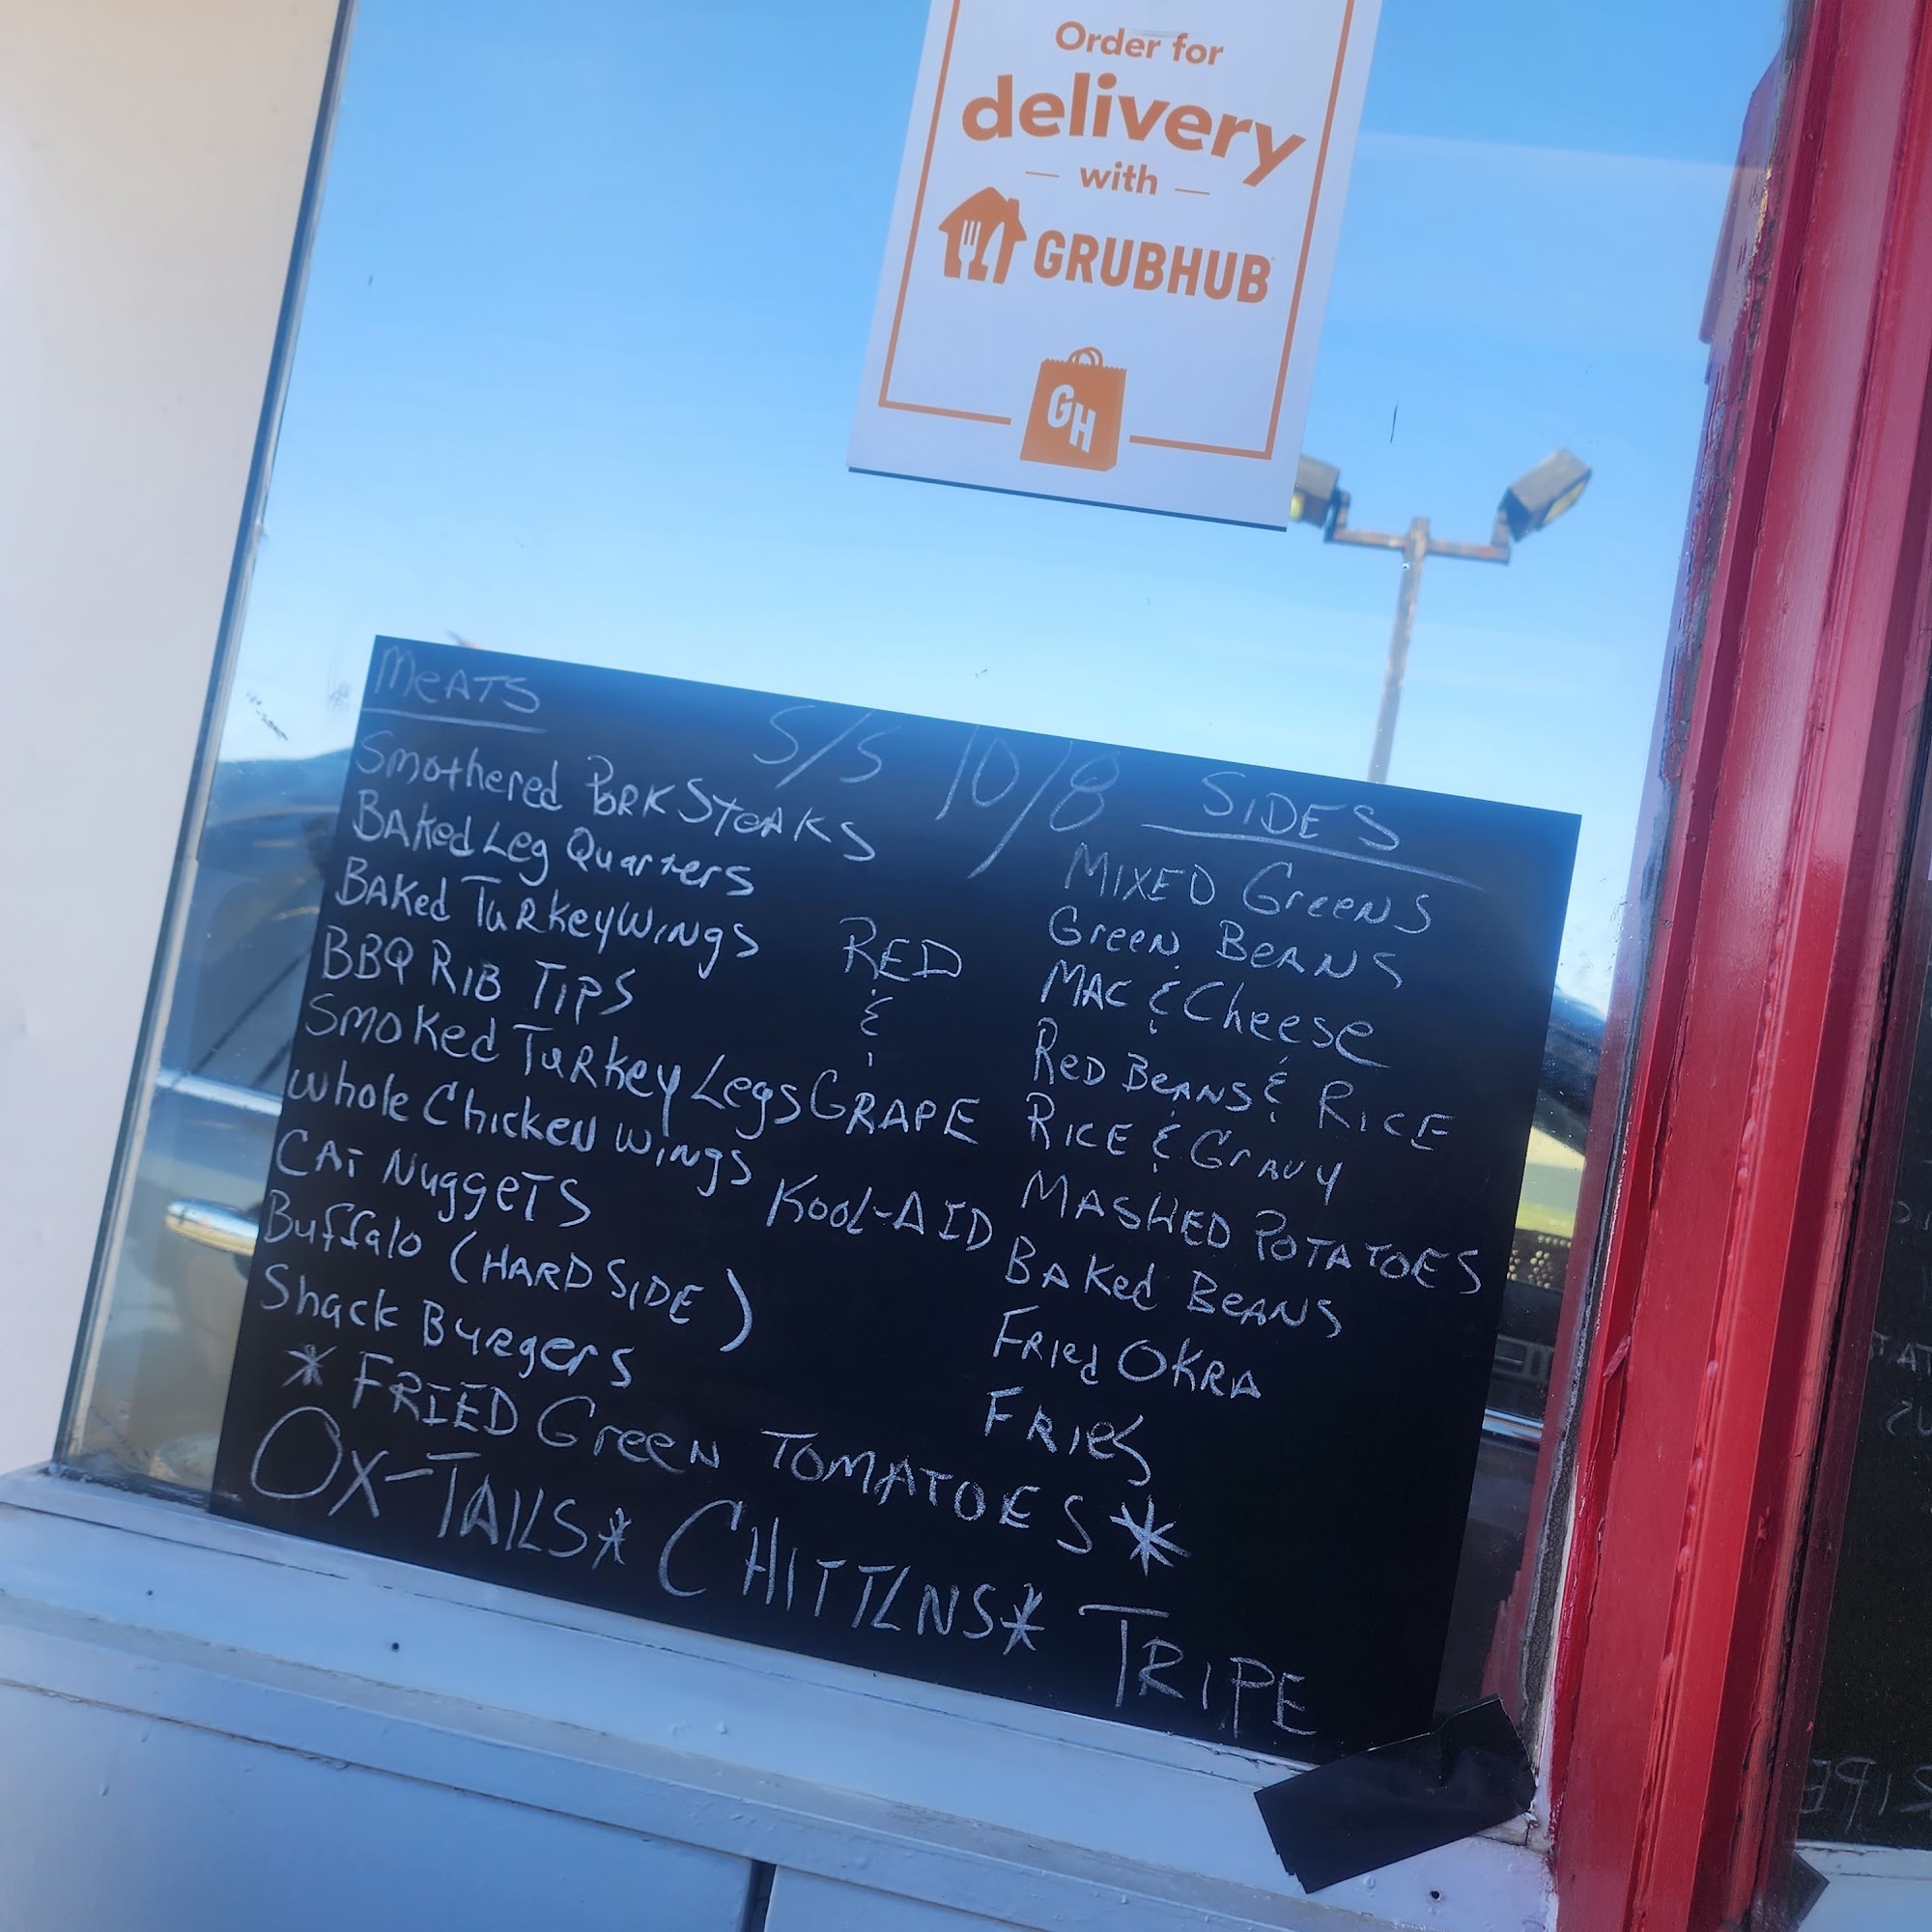 Order for
delivery
with
GRUBHUB
GH
MEATS
S/S 10/8
Smothered Pork Steaks
Baked Leg Quarters
Baked Turkey Wings
BBQ Rib Tips
Smoked Turkey Legs
Whole Chicken Wings
Cat Nuggets
Buffalo (HARD SIDE)
Shack Burgers
RED
&
GRAPE
KOOL-AID
SIDES
MIXED Greens
Green Beans
MAC & Cheese
Red Beans & Rice
Rice & Gravy
MASHED POTATOES
Baked Beans
Fried OKRA
Fries
* FRIED Green TOMATOES *
OX-TAILS * CHITTLNS * TRIPE